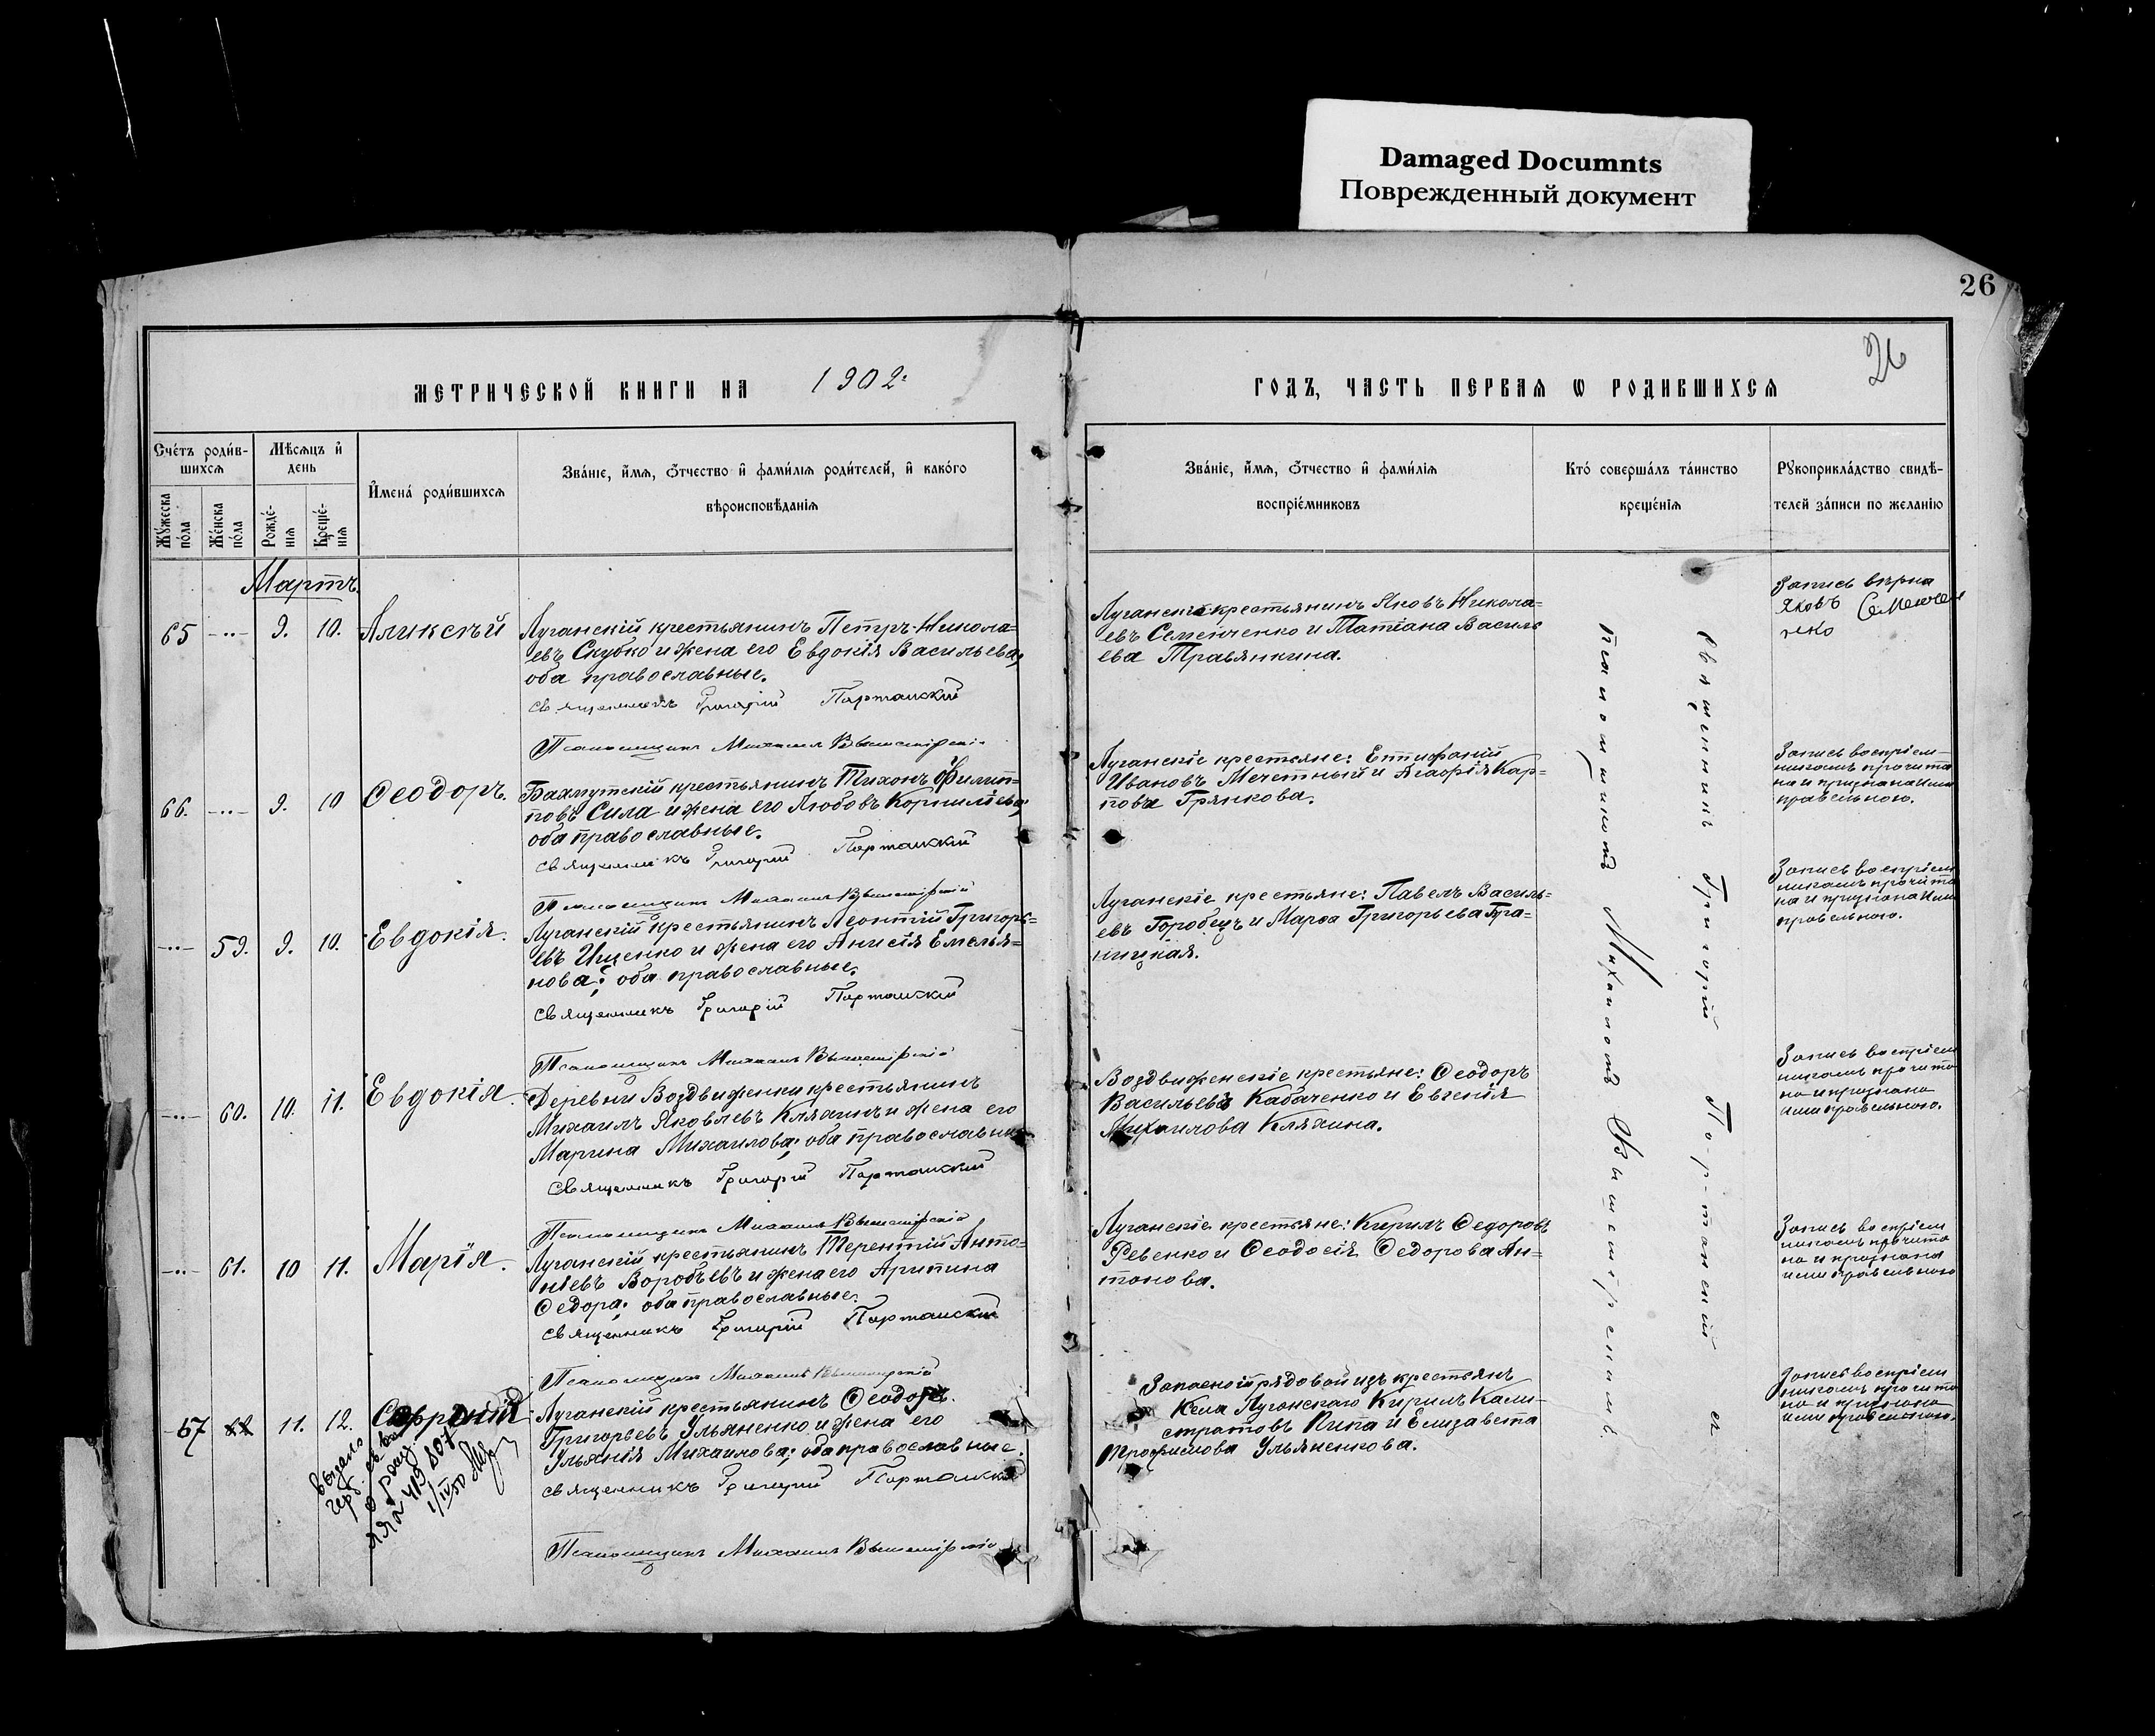 Damaged Documnts
Поврежденный документ
26
26
МЕТРИЧЕСКОЙ КНИГИ НА 1902 г
ГОДЪ, ЧАСТЬ ПЕРВАЯ Ѡ РОДИВШИХСЯ
Счéтъ роди́в-
шихсѧ
Мѣсѧцъ и҆
день
Мꙋ́жеска
по́ла
Же́нска
по́ла
Рожде́-
нїѧ
Креще́-
нїѧ
И҆мена́ роди́вшихсѧ
Зва́нїе, и҆́мѧ, ѻ҆́тчество и҆ фами́лїѧ роди́телей, и҆ како́гѡ
вѣроисповѣ́данїѧ
Зва́нїе, и҆́мѧ, ѻ҆́тчество и҆ фами́лїѧ
воспрїе́мниковъ
Кто́ соверша́лъ та́инство
креще́нїѧ
Рꙋкоприкла́дство свидѣ́-
телей за́писи по жела́нїю
Мартъ.
65 -"- 9. 10. Аликсѣй
Луганскій крестьянинъ Петръ Никола=
евъ Скубко и жена его Евдокія Васильева;
оба православные.
Священникъ Григорій Портанскій
Псаломщикъ Михаилъ Вышемірскій
Луганскіе крестьянинъ Яковъ Никола=
евъ Семенченко и Татіана Василь
ева Травянкина.
Запись вѣрна
Яковъ Семенче
нко
66. -"- 9. 10 Ѳеодоръ.
Бахмутскій крестьянинъ Тихонъ Филип=
повъ Сила и жена его Любовь Корниліева;
оба православные.
Священникъ Григорій Портанскій
Псаломщикъ Михаилъ Вышемірскій
Луганскіе крестьяне: Епифаній
Ивановъ Мечетный и Агафія Кар=
пова Грянкова.
Запись воспріем-
никомъ прочита
на и признана ими
правельною.
-"- 59. 9. 10. Евдокія.
Луганскій крестьянинъ Леонтій Григорь=
евъ Ищенко и жена его Анисія Емелья=
нова; оба православные.
Священникъ Григорій Портанскій
Псаломщикъ Михаилъ Вышемірскій
Луганскіе крестьяне: Павелъ Василь=
евъ Горобецъ и Марѳа Григорьева Гра=
ницкая.
Запись воспріем
никомъ прочита
на и признана ими
правельною.
-"- 60. 10. 11. Евдокія.
Деревни Воздвиженки крестьянинъ
Михаилъ Яковлевъ Кляхинъ и жена его
Марина Михаилова; оба православные
Священникъ Григорій Портанскій
Псаломщикъ Михаилъ Вышемірскій
Воздвиженскіе крестьяне: Ѳеодоръ
Васильевъ Кабаченко и Евгенія
Михаилова Кляхина.
Запись воспріем
никомъ прочита
на и признана
ими правельною.
-"- 61. 10 11. Марія.
Луганскій крестьянинъ Терентій Анто=
ніевъ Воробъевъ и жена его Агрипина
Ѳедора; оба православные.
Священникъ Григорій Портанскій
Псаломщикъ Михаилъ Вышемірскій
Луганскіе крестьяне: Кирилъ Ѳедоровъ
Ревенко и Ѳеодосія Ѳедорова Ан=
тонова.
Запись воспріем
никомъ прочита
на и признана
ими правельною
67 11. 12. Софроній
Луганскій крестьянинъ Ѳеодоръ
Григорьевъ Ульяненко и жена его
Ульянія Михаилова; оба православные.
Священникъ Григорій Портанскій
Псаломщикъ Михаилъ Вышемірскій
Запасной рядовой изъ крестьянъ
села Луганскаго Кирилъ Кали-
стратовъ Пипа и Елизавета
Трофимова Ульяненкова.
Запись воспріем
никомъ прочита
на и признана
ими правельною.
выдано
419807
Священникъ Григорій Портанскій съ
псаломщикомъ Михаиломъ Вышемірскимъ